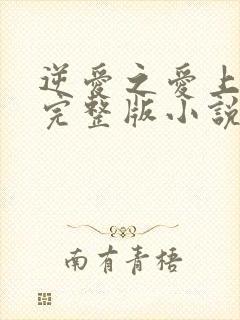 逆愛之愛上
完整版小說
南有青梧